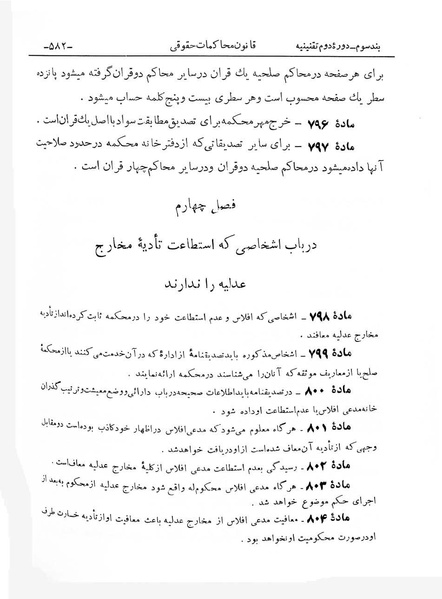 بند سوم ـ دورهٔ دوم تقنینیه قانون محاکمات حقوقی ـ۵۸۲ـ
برای هر صفحه در محاکم صلحیه یك قران در سایر محاکم دو قران گرفته میشود پانزده
سطر یك صفحه محسوب است وهر سطری بیست و پنج کلمه حساب میشود .
مادهٔ ۷۹۶ ـ خرج مهر محکمه برای تصدیق مطابقت سواد با اصل یك قران است .
مادهٔ ۷۹۷ ـ برای سایر تصدیقاتی که از دفتر خانه محکمه در حدود صلاحیت
آنها داده میشود در محاکم صلحیه دو قران و در سایر محاکم چهار قران است .
فصل چهارم
در باب اشخاصی که استطاعت تأدیهٔ مخارج
عدلیه را ندارند
مادهٔ ۷۹۸ ـ اشخاصی که افلاس و عدم استطاعت خود را در محکمه ثابت کرده اند از تأدیه
مخارج عدلیه معافند .
مادهٔ ۷۹۹ ـ اشخاص مذکوره باید تصدیقنامهٔ از ادارهٔ که در آن خدمت می کنند یا از محکمهٔ
صلح یا از معاریف موثقه که آنان را می شناسند در محکمه ارائه نمایند .
مادهٔ ۸۰۰ ـ در تصدیقنامه باید اطلاعات صحیحه در باب دارائی و وضع معیشت و ترتیب گذران
خانه مدعی افلاس یا عدم استطاعت او داده شود .
مادهٔ ۸۰۱ ـ هر گاه معلوم میشود که مدعی افلاس در اظهار خود کاذب بوده است دو مقابل
وجهی که از تأدیه آن معاف شده است از او دریافت خواهد شد .
مادهٔ ۸۰۲ ـ رسیدگی بعدم استطاعت مدعی افلاس از کلیهٔ مخارج عدلیه معاف است .
مادهٔ ۸۰۳ ـ هر گاه مدعی افلاس محکوم له واقع شود مخارج عدلیه از محکوم به بعد از
اجرای حکم موضوع خواهد شد .
مادهٔ ۸۰۴ ـ معافیت مدعی افلاس از مخارج عدلیه باعث معافیت او از تأدیه خسارت طرف
او در صورت محکومیت او نخواهد بود .